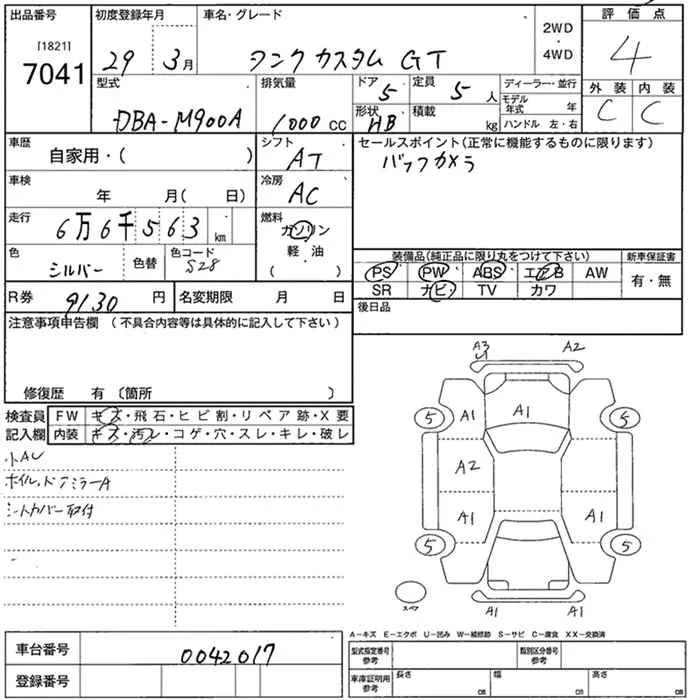 出品番号 初度登録年月 車名・グレード 2WD・4WD 評価点
［1821］
7041 29 3月 タンク カスタム GT 4
型式 排気量 ドア 5 定員 5人 ディーラー・並行 外装 内装
DBA-M900A 1000 CC 形状 HB 積載 kg モデル年式 年 C C
ハンドル 左・右
車歴 自家用・( ) シフト AT セールスポイント(正常に機能するものに限ります)
車検 年 月( 日) 冷房 AC バックカメラ
走行 6万6千563 km 燃料 ガソリン
軽油
( )
色 シルバー 色替 色コード S28
装備品(純正品に限り丸をつけて下さい) 新車保証書
PS PW ABS エアB AW 有・無
SR ナビ TV カワ
R券 9130 円 名変期限 月 日 後日品
注意事項申告欄 (不具合内容等は具体的に記入して下さい)
修復歴 有 (箇所 )
検査員 FW キズ・飛石・ヒビ割・リペア跡・X要
記入欄 内装 キズ・汚レ・コゲ・穴・スレ・キレ・破レ
小AU
ホイル、ドアミラーA
シートカバー取付
A3 A2
5 A1 A1 5
A2
A1 A1
5 5
A1 A1
A－キズ E－エクボ U－凹み W－補修跡 S－サビ C－腐食 XX－交換済
車台番号 0042017 型式指定番号 参考 類別区分番号 参考
登録番号 車庫証明用 参考 長さ cm 幅 cm 高さ cm